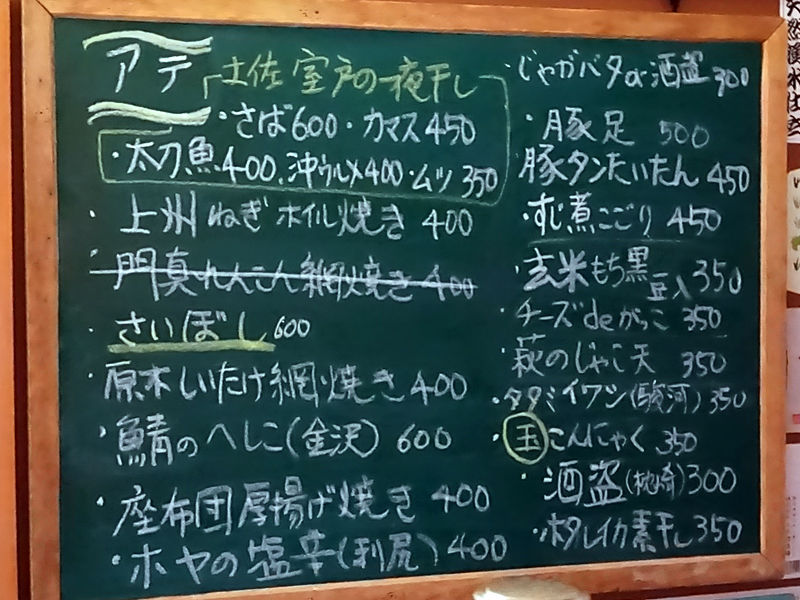 アテ
土佐室戸の一夜干し
・さば600・カマス450
・太刀魚400.沖ウルメ400・ムツ350
・上州ねぎホイル焼き 400
・門真れんこん網焼き400
・さいぼし600
・原木しいたけ網焼き400
・鯖のへしこ(金沢) 600
・座布団厚揚げ焼き 400
・ホヤの塩辛(利尻)400
・じゃがバタor酒盗 300
・豚足 500
豚タンたいたん 450
・すじ煮こごり 450
・玄米もち黒豆入350
・チーズdeがっこ 350
・萩のじゃこ天 350
・タタミイワシ(駿河)350
・玉こんにゃく 350
・酒盗(枕崎)300
・ホタルイカ素干し350